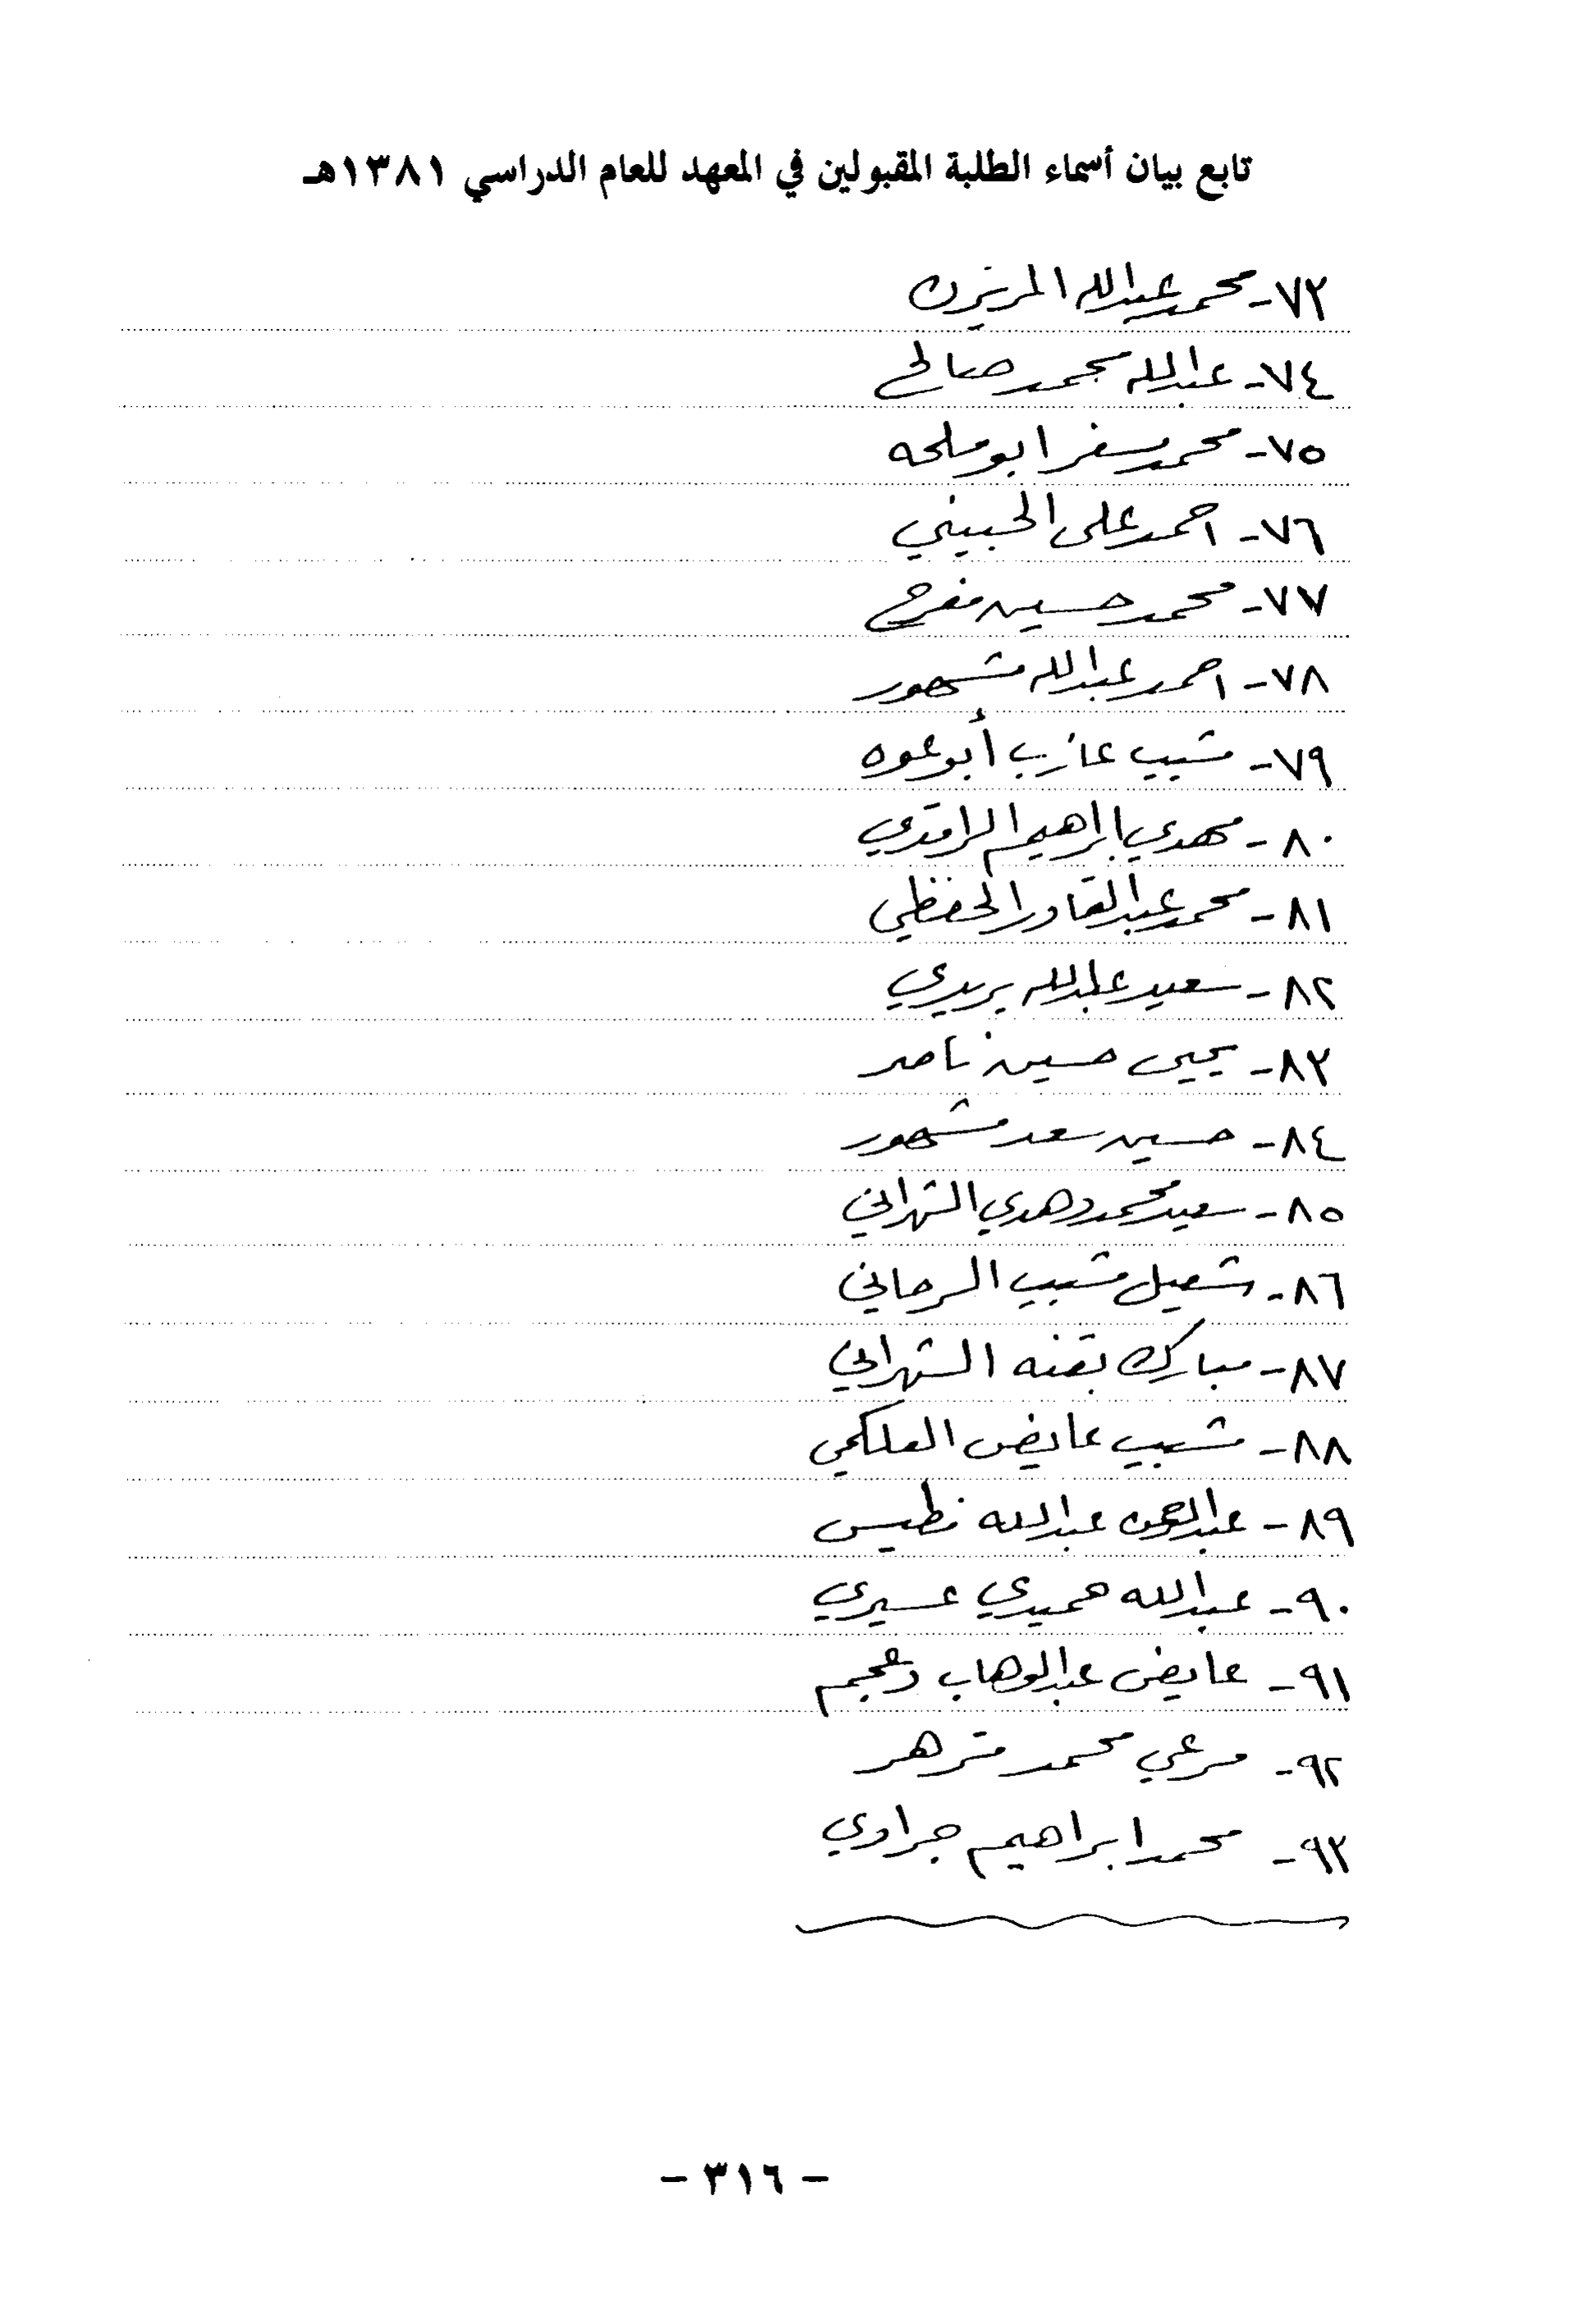 تابع بيان أسماء الطلبة المقبولين في المعهد للعام الدراسي ١٣٨١هـ
٧٣- محمد عبدالله
٧٤- عبدالله محمد صالح
٧٥- محمد مسفر ابو ملحه
٧٦- احمد على الحبيني
٧٧- محمد حسين مفرح
٧٨- احمد عبدالله مشهور
٧٩- مشبب عازب أبو عوه
٨٠- مهدي ابراهيم الراقدي
٨١- محمد عبدالقادر الحفظي
٨٢- سعيد عبدالله بريدي
٨٣- يحيى حسين ناصر
٨٤- حسين سعد مشهور
٨٥- سعيد محمد وهدي الشهراني
٨٦- شعيل مشبب السرحاني
٨٧- مبارك بقنه الشهراني
٨٨- مشبب عايض العلكمي
٨٩- عبدالرحمن عبدالله نطيس
٩٠- عبدالله حميدي عسيري
٩١- عايض عبدالوهاب دعجم
٩٢- مرعي محمد مزهر
٩٣- محمد ابراهيم جراوي
- ٣١٦ -